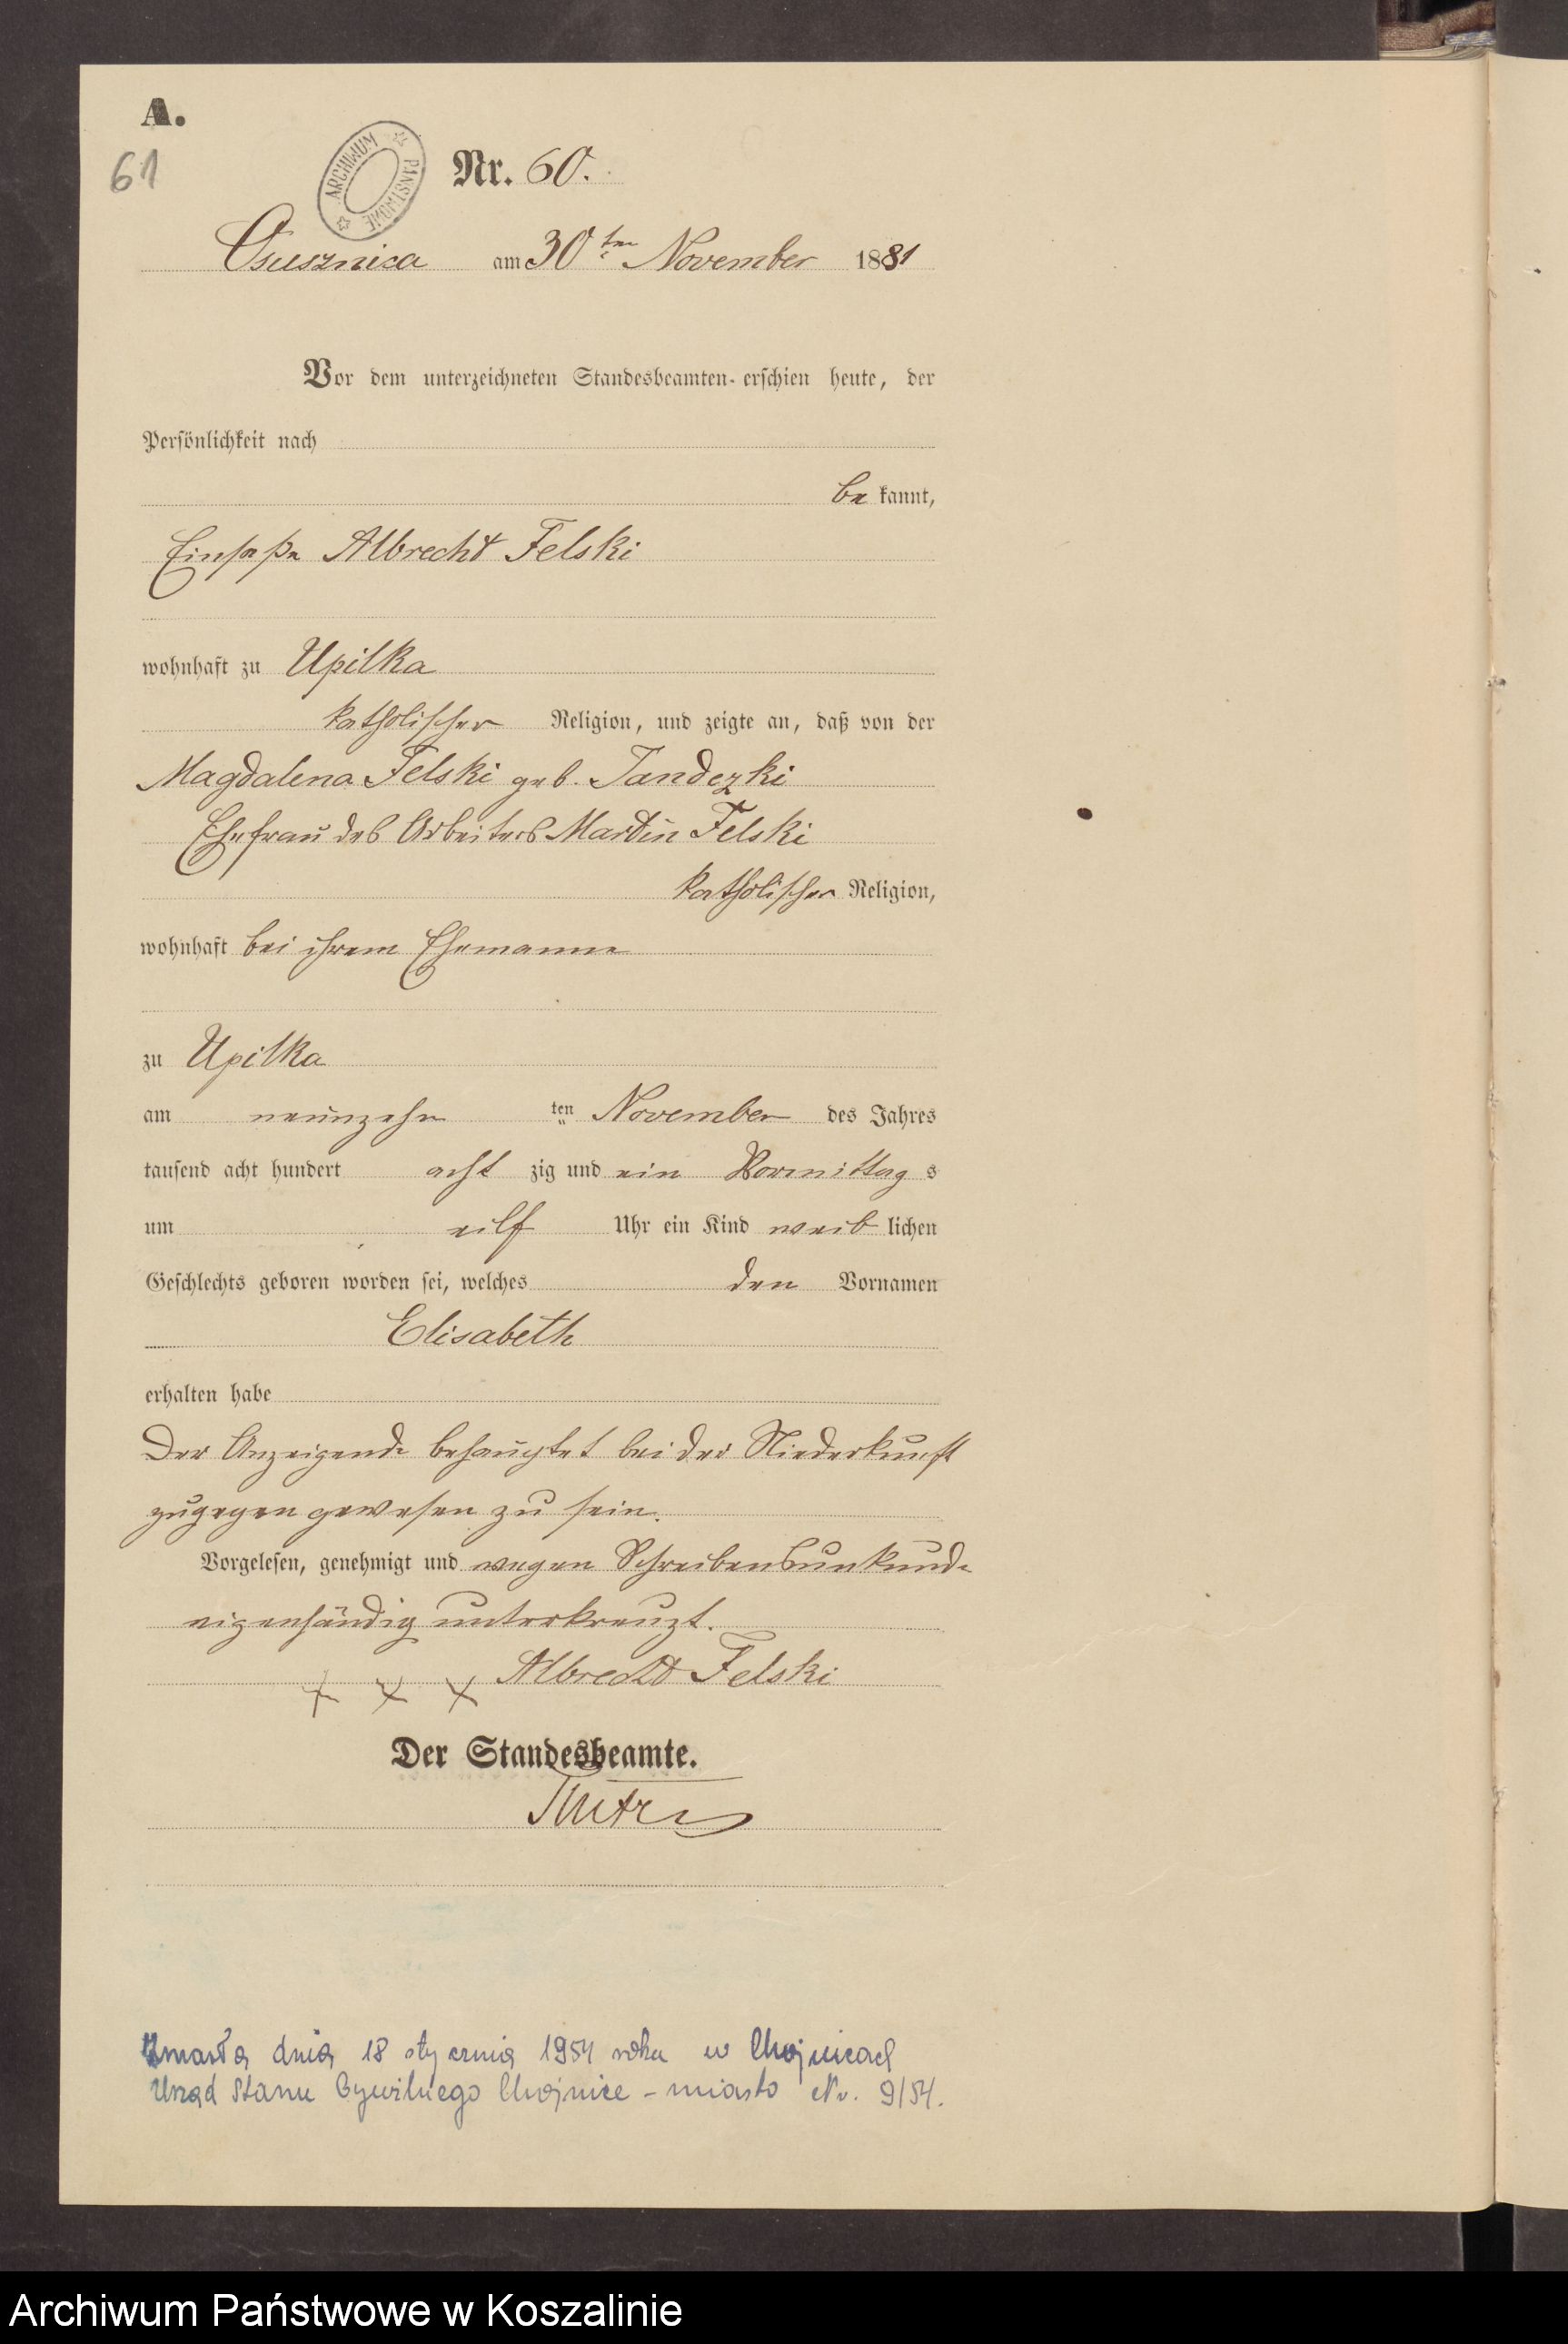 A.
61
ARCHIWUM PAŃSTWOWE
Nr. 60.
Osusznica am 30ten November 1881
Vor dem unterzeichneten Standesbeamten erschien heute, der
Persönlichkeit nach
be kannt,
Einsaße Albrecht Felski
wohnhaft zu Upilka
katholischer Religion, und zeigte an, daß von der
Magdalena Felski geb. Jandezki
Ehefrau des Arbeiters Martin Felski
katholischer Religion,
wohnhaft bei ihrem Ehemanne
zu Upilka
am neunzehn ten November des Jahres
tausend acht hundert acht zig und ein Vormittag s
um eilf Uhr ein Kind weib lichen
Geschlechts geboren worden sei, welches den Vornamen
Elisabeth
erhalten habe
Der Anzeigende behauptet bei der Niederkunft
zugegen gewesen zu sein.
Vorgelesen, genehmigt und wegen Schreibensunkunde
eigenhändig unterkreuzt.
+ + + Albrecht Felski
Der Standesbeamte.
Zmarła dnia 18 stycznia 1954 roku w Chojnicach
Urząd Stanu Cywilnego Chojnice - miasto Nr. 9/54.
Archiwum Państwowe w Koszalinie